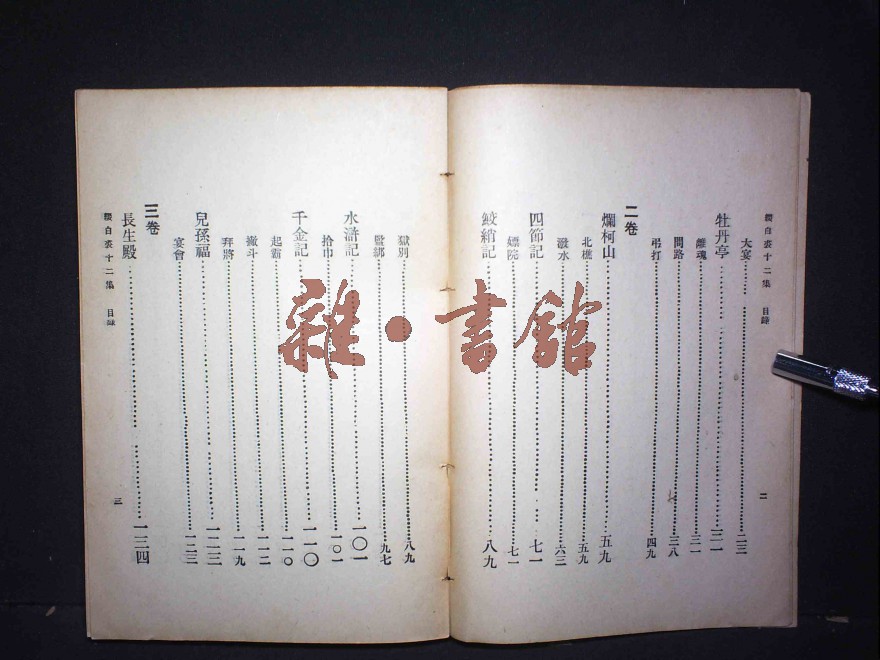 綴白裘十二集 目錄
大宴 二三
牡丹亭 三一
離魂 三一
問路 三八
弔打 四九
二卷
爛柯山 五九
北樵 五九
潑水 六三
四節記 七一
嫖院 七一
鮫綃記 八九
二
獄別 八九
監綁 九七
水滸記 一〇一
拾巾 一〇一
千金記 一一〇
起霸 一一〇
撇斗 一一二
拜將 一一九
兒孫福 一二三
宴會 一二三
三卷
長生殿 一三四
綴白裘十二集 目錄
三
雜·書館